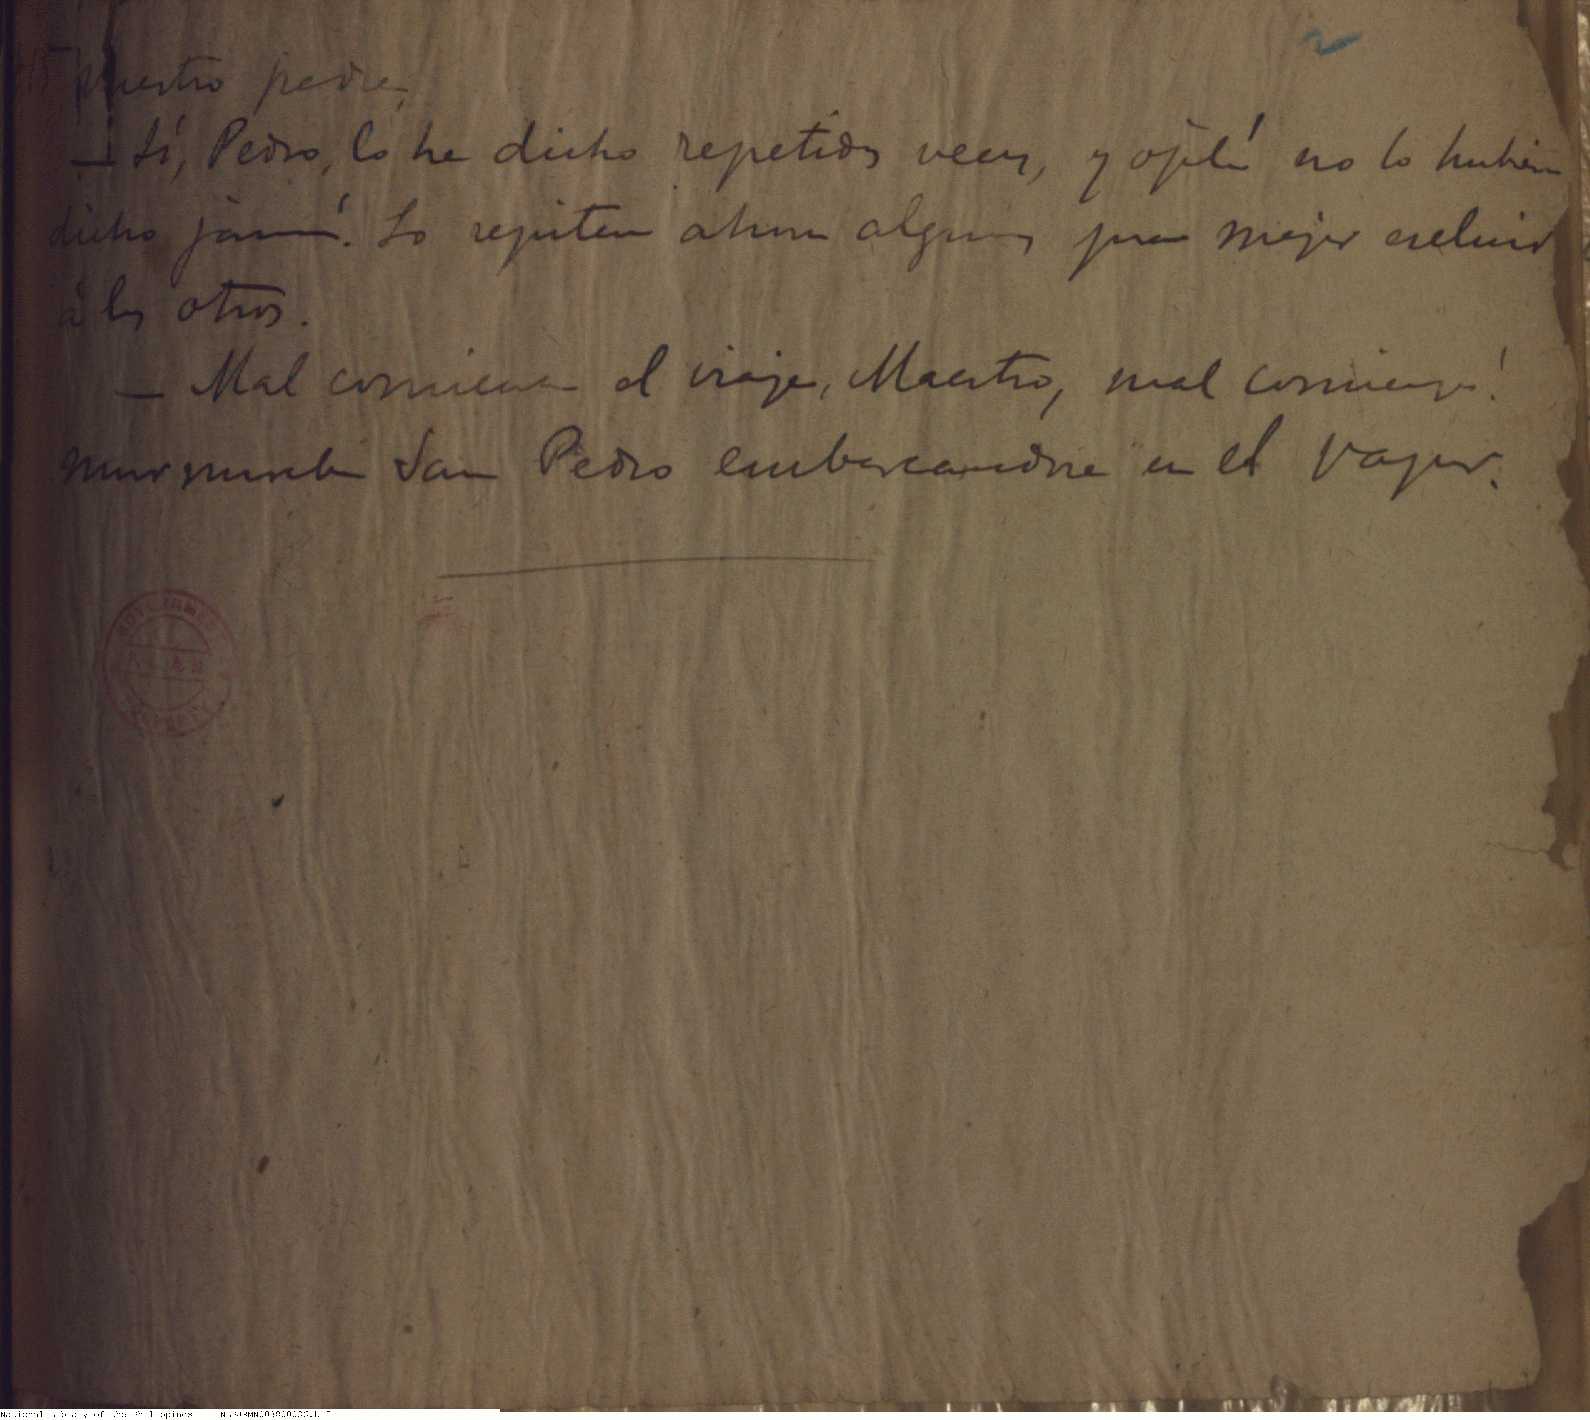 2
nuestro padre,
— Sí, Pedro, lo he dicho repetidas veces, y ojalá no lo hubiera
dicho jamás. Lo repiten ahora algunos para mejor excluir
á los otros.
— Mal comienza el viaje, Maestro, mal comienza!
murmuraba San Pedro embarcandose en el vapor.
National Library of the Philippines